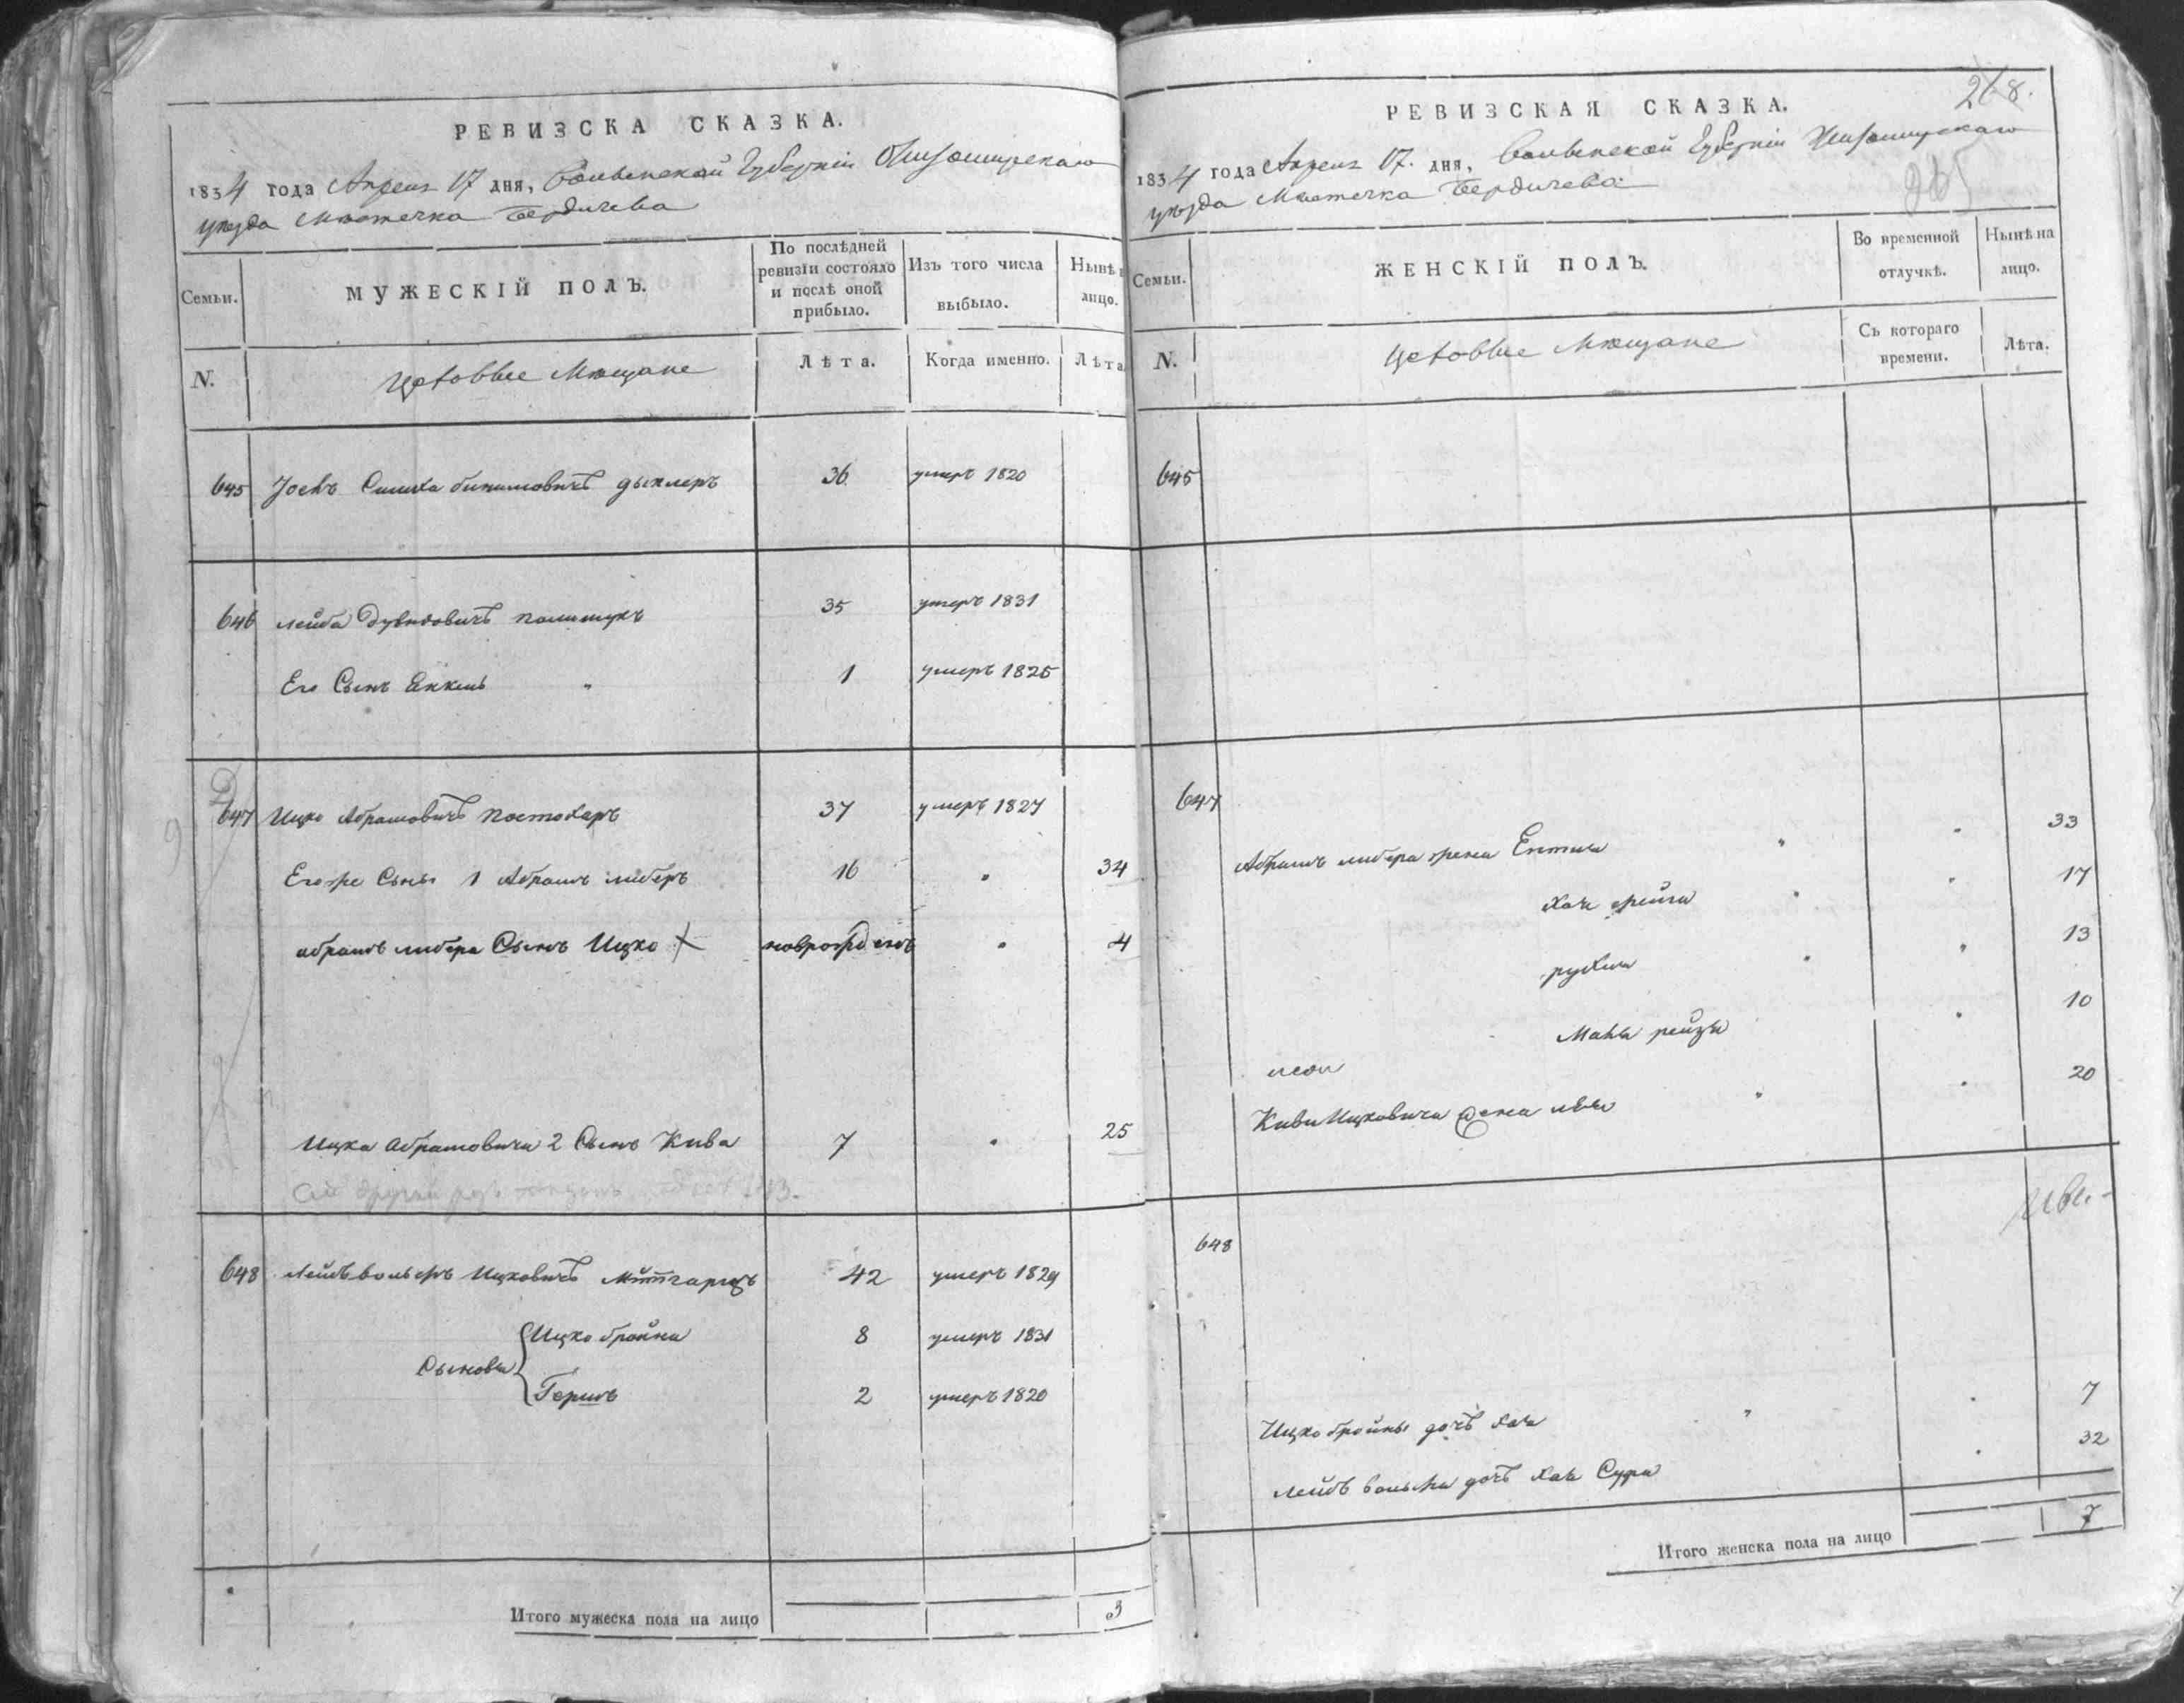 РЕВИЗСКА СКАЗКА.
1834 года Апреля 17 дня, Волынской Губернии Житомирскаго
уѣзда Мѣстечка Бердичева
Семьи.
МУЖЕСКІЙ ПОЛЪ.
По послѣдней ревизіи состояло и послѣ оной прибыло.
Изъ того числа выбыло.
Нынѣ лицо.
N.
Мѣщане
Лѣта.
Когда именно.
Лѣта
645 Іосъ Симха дыклеръ 36 умеръ 1820
646 Лейба Дувидовичъ полищукъ 35 умеръ 1831
Его Сынъ Янкель " 1 умеръ 1825
647 Ицко Абрамовичъ 37 умеръ 1827
Егоже Сыны 1 Абрамъ либеръ 16 " 34
абрамъ либера Сынъ Ицко новрожденъ " 4
Ицка Абрамовича 2 Сынъ Кива 7 " 25
648 Лейбъ Ицковичъ 42 умеръ 1829
Сыновья
Ицко бройна 8 умеръ 1831
Гершъ 2 умеръ 1820
Итого мужеска пола на лицо 3
268.
РЕВИЗСКАЯ СКАЗКА.
1834 года Апреля 17. дня, Волынской Губерніи Житомирскаго
уѣзда Мѣстечка Бердичева
Семьи.
ЖЕНСКІЙ ПОЛЪ.
Во временной отлучкѣ.
Нынѣ на лицо.
N.
Мѣщане
Съ котораго времени.
Лѣта.
645
647
Абрамъ либера жена Ентля " " 33
хая " " 17
рухля " " 13
Маня рейзя " 10
Киви Ицковича жена " " 20
648
Ицко бройны дочь хая " " 7
Лейбъ дочь хая Сура " 32
Итого женска пола на лицо 7